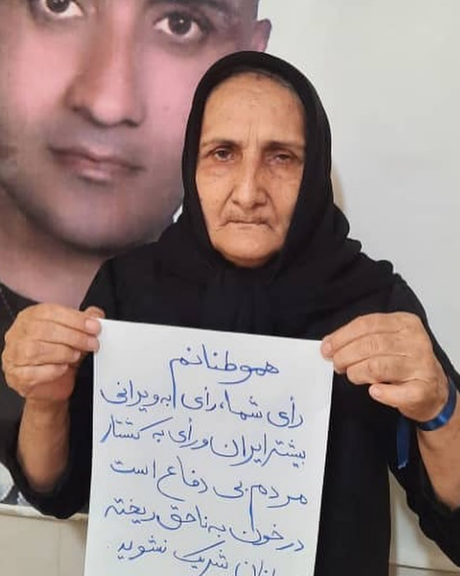 هموطنانم
رأی شما، رأی به ویرانی
بیشتر ایران و رأی به کشتار
مردم بی دفاع است
در خون به ناحق ریخته
شریک نشوید